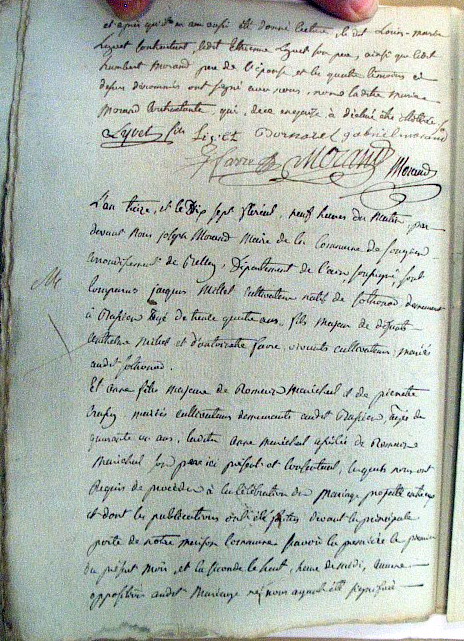 et après qu'il en a aussi été donné lecture, le dit Louis-marie
Lyvet contractant, ledit Etienne Lyvet son père, ainsi que ledit
humbert Morand père de l'épouse et les quatre témoins ci
dessus dénommés ont signé avec nous, non la dite Marie
Morand contractante, qui, de ce enquise à déclaré
Lyvet fils Lyvet gabriel morand
Favre Morand Morand
L'an treize, et le dix sept floréal, neuf heures du matin, par
devant Nous joseph Morand Maire de la Commune de
arrondissement de Belley, Département de l'ain soussigné, sont
comparus jacques Millet cultivateur natif de demeurant
à âgé de trente quatre ans, fils majeur de défunts
Millet et d'antoinette favre, vivants cultivateurs, mariés
audit
Et anne fille majeure de Romain Marichal et de pierrette
mariés cultivateurs demeurants audit âgée de
quarante un ans, ladite anne marichal assistée de Romain
Marichal son père ici présent et consentant, lesquels nous ont
Requis de procéder à la célébration du Mariage projetté entr'eux
et dont les publications ont été faites devant la principale
porte de notre maison Commune sçavoir la première le premier
du présent mois, et la seconde le huit, heure de midi, aucune
opposition audit Mariage ne nous ayant été signifiée